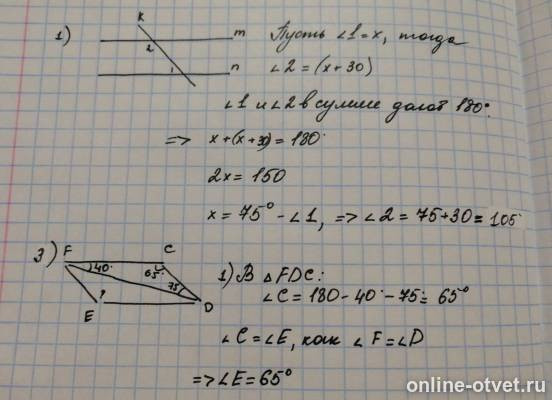 1) K
m
2
1
n
Пусть ∠1=x, тогда
∠2=(x+30)
∠1 и ∠2 в сумме дают 180°.
=> x+(x+30)=180°
2x=150
x=75°-∠1, => ∠2=75+30=105°
3) F C
40° 65° 75
E ? D
1) В △FDC:
∠C=180-40-75=65°
∠C=∠E, как ∠F=∠D
=> ∠E=65°
online-otvet.ru